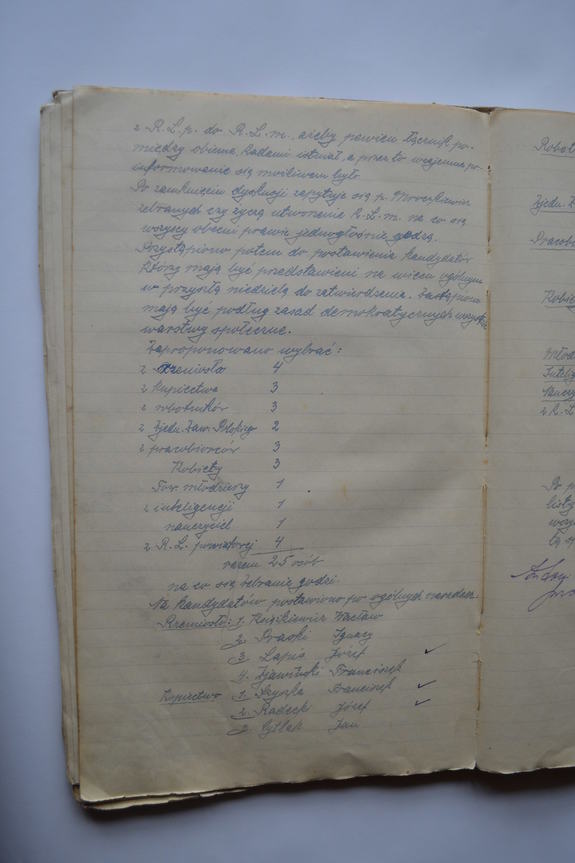 z R.L.p. do R.L.m. ażeby pewien łącznik po-
między obiema Radami istniał a przez to wzajemne po
informowanie się możliwem było.
Po zamknięciu dyskusji zapytuje się p. Mroczkiewicz
zebranych czy życzą utworzenie R.L.m. na co się
wszyscy obecni prawie jednogłośnie godzą.
Przystąpiono potem do postawienia kandydatów
którzy mają być przedstawieni na wiecu ogólnym
w przyszłą niedzielę do zatwierdzenia.
mają być podług zasad demokratycznych
warstwy społeczne.
Zaproponowano wybrać:
z rzemiosła 4
z kupiectwa 3
z robotników 3
z Zjedn. Zaw. Polskiego 2
z pracobiorców 3
Kobiety 3
Tow. młodzieży 1
z inteligencji 1
nauczyciel 1
z R.L. powiatowej 4
razem 25 osób
na co się zebranie godzi.
Na kandydatów postawiono po ogólnych naradach
Rzemiosło: 1. Księżkiewicz Wacław
2. Ignacy
3. Lapis Józef
4. Franciszek
Kupiectwo 1. Szyszka Franciszek
2. Radecki Józef
3. Jan
Robot
Zjedn. Z
Pracobi
Kobie
Młod
Inteli
Nauczy
z R.L
Po p
listy
wszy